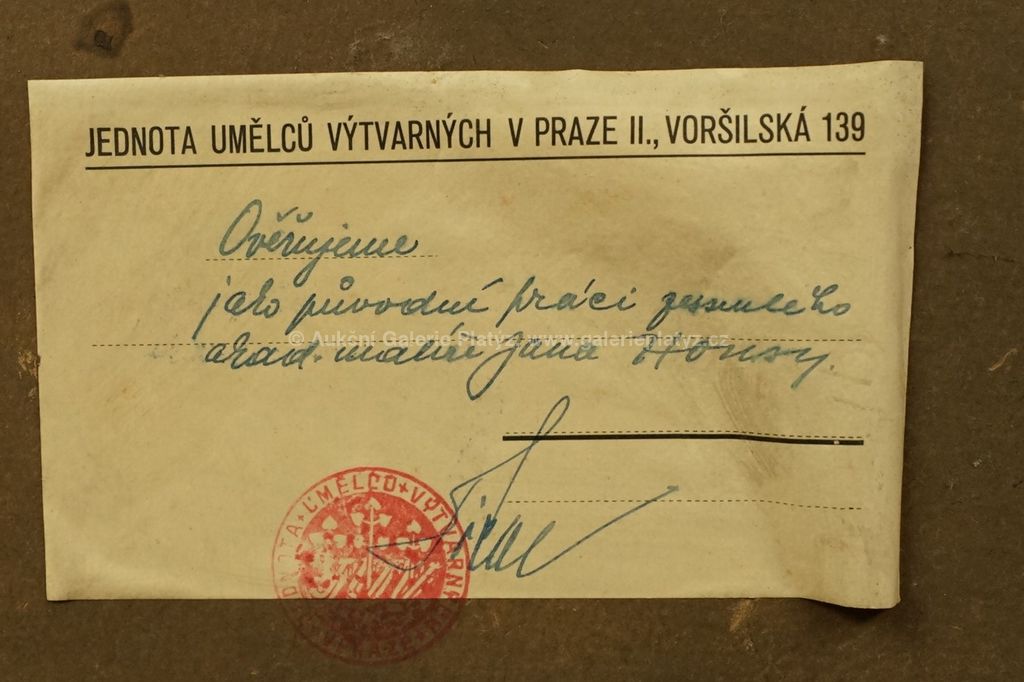 JEDNOTA UMĚLCŮ VÝTVARNÝCH V PRAZE II., VORŠILSKÁ 139
Ověřujeme
jako původní práci zesnulého
© Aukční Galerie Platýz, www.galerieplatyz.cz
akad. malíře Jana Honsy.
JEDNOTA UMĚLCŮ VÝTVARNÝCH